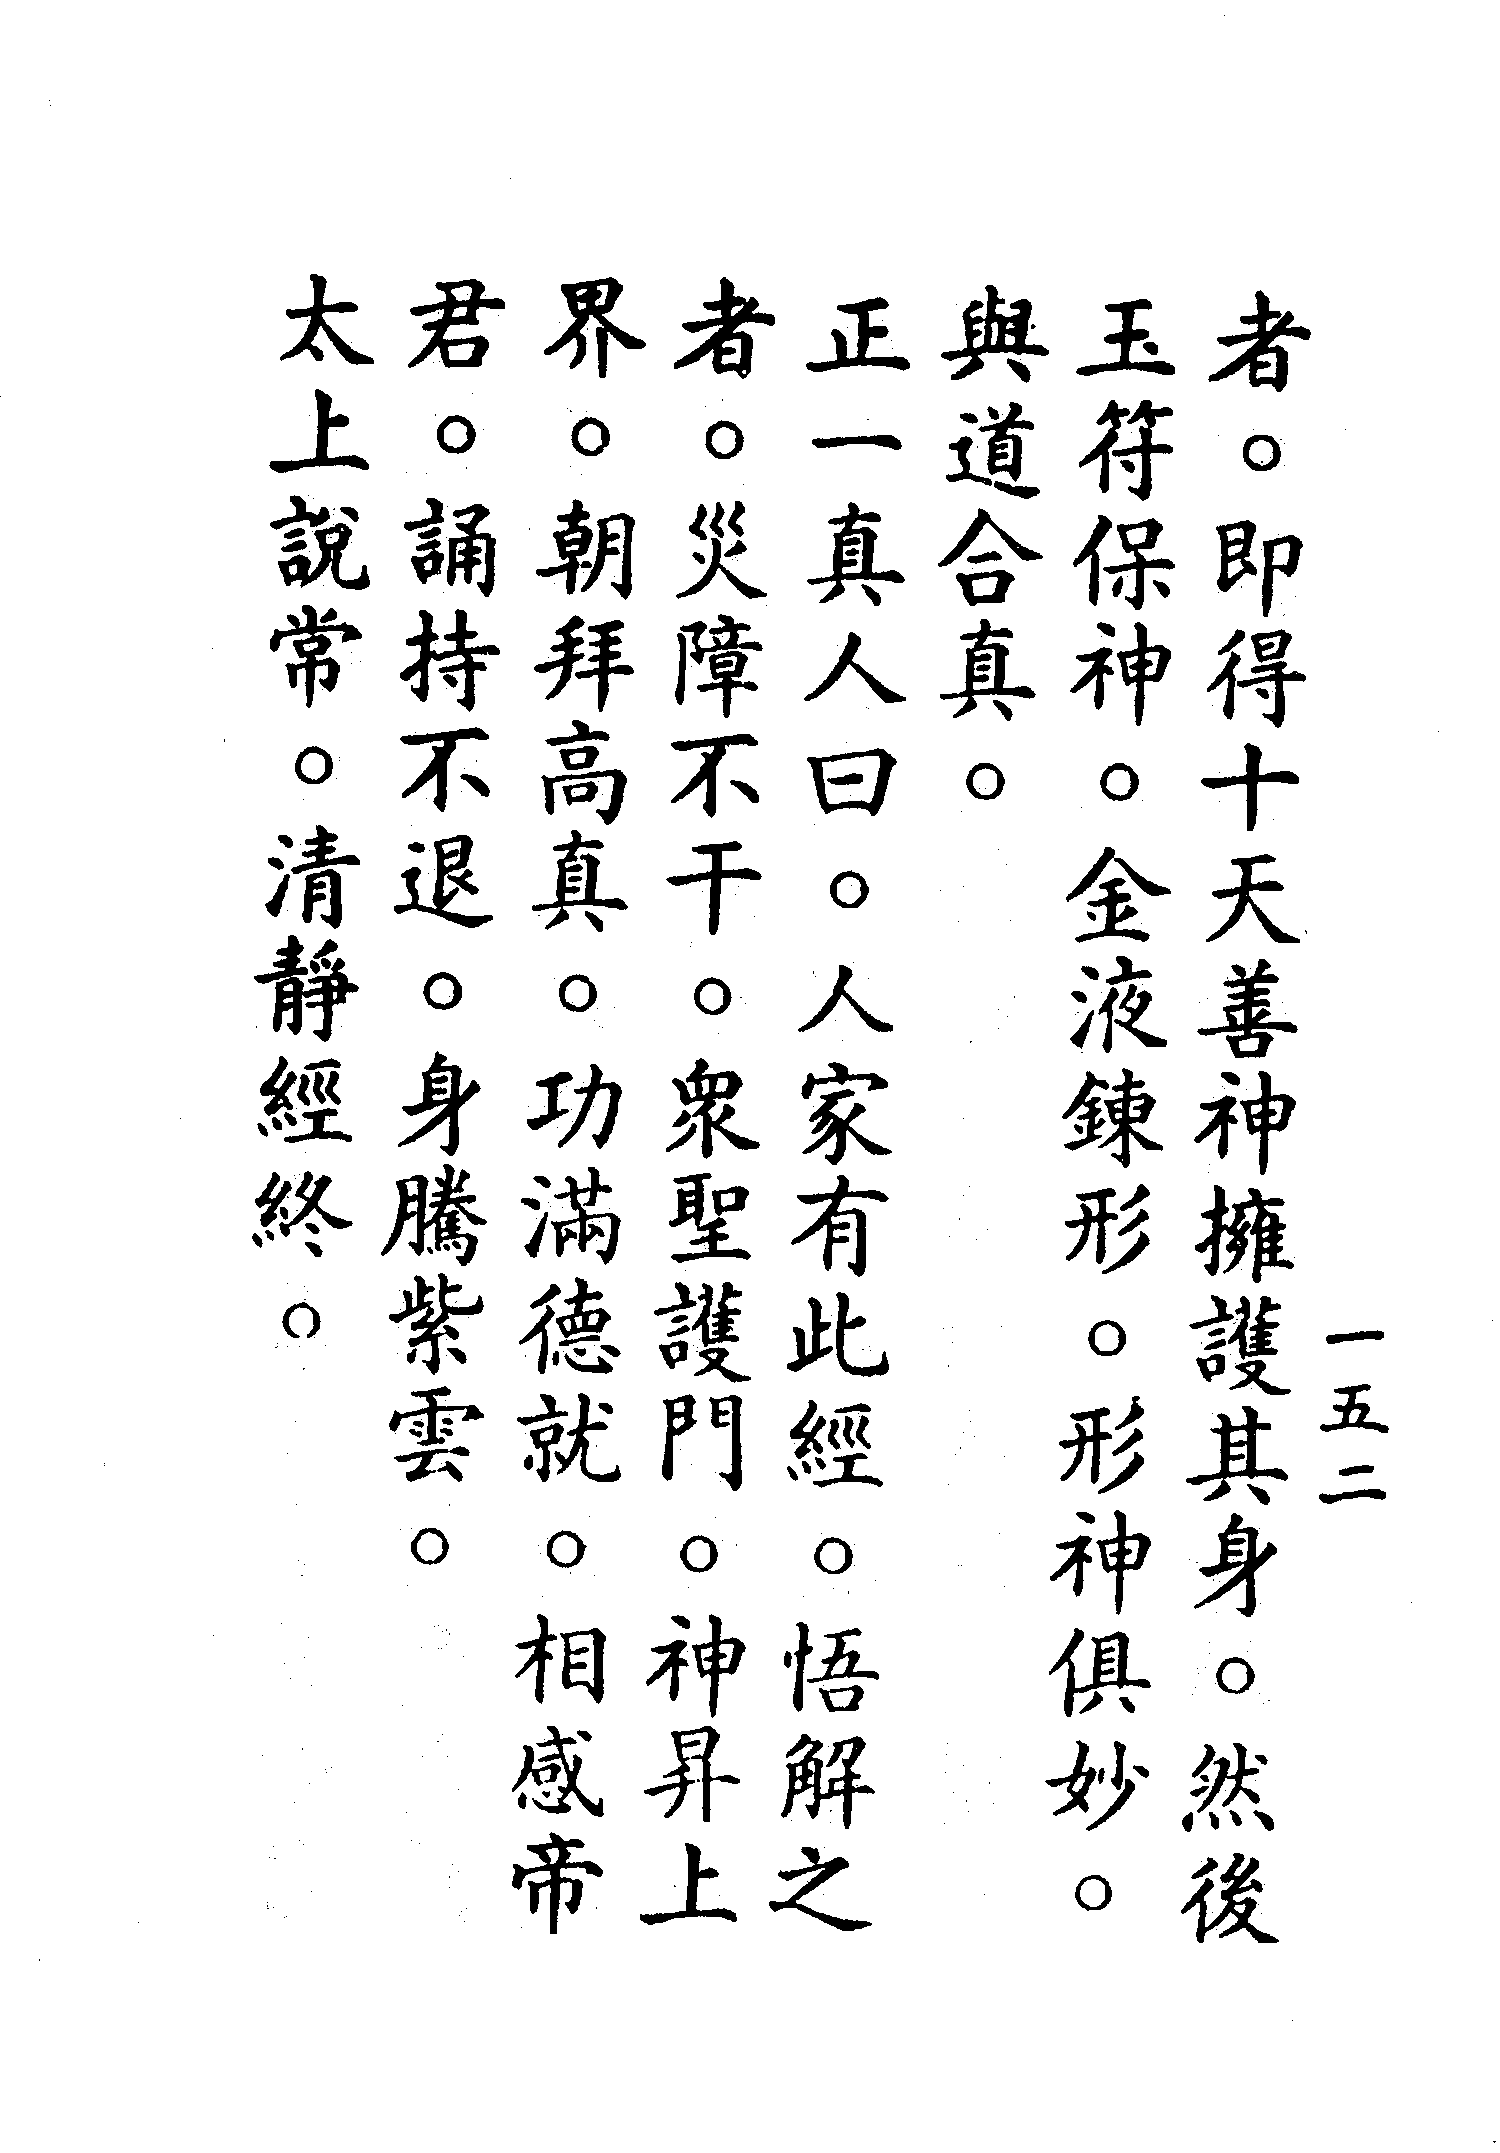 一五二
者。即得十天善神擁護其身。然後
玉符保神。金液鍊形。形神俱妙。
與道合真。
正一真人曰。人家有此經。悟解之
者。災障不干。眾聖護門。神昇上
界。朝拜高真。功滿德就。相感帝
君。誦持不退。身騰紫雲。
太上說常。清靜經終。